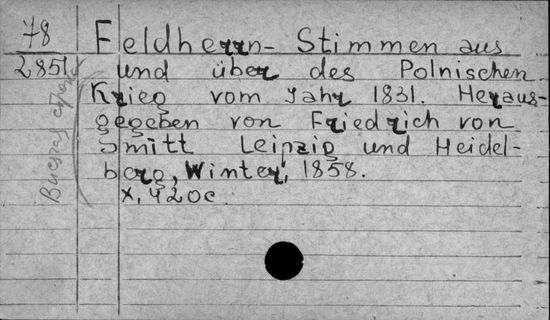 78
2851
Feldherrn- Stimmen aus
und über des Polnischen
Krieg vom Jahr 1831. Heraus-
gegeben von Friedrich von
Smitt Leipzig und Heidel-
berg, Winter, 1858.
X, 420 c.